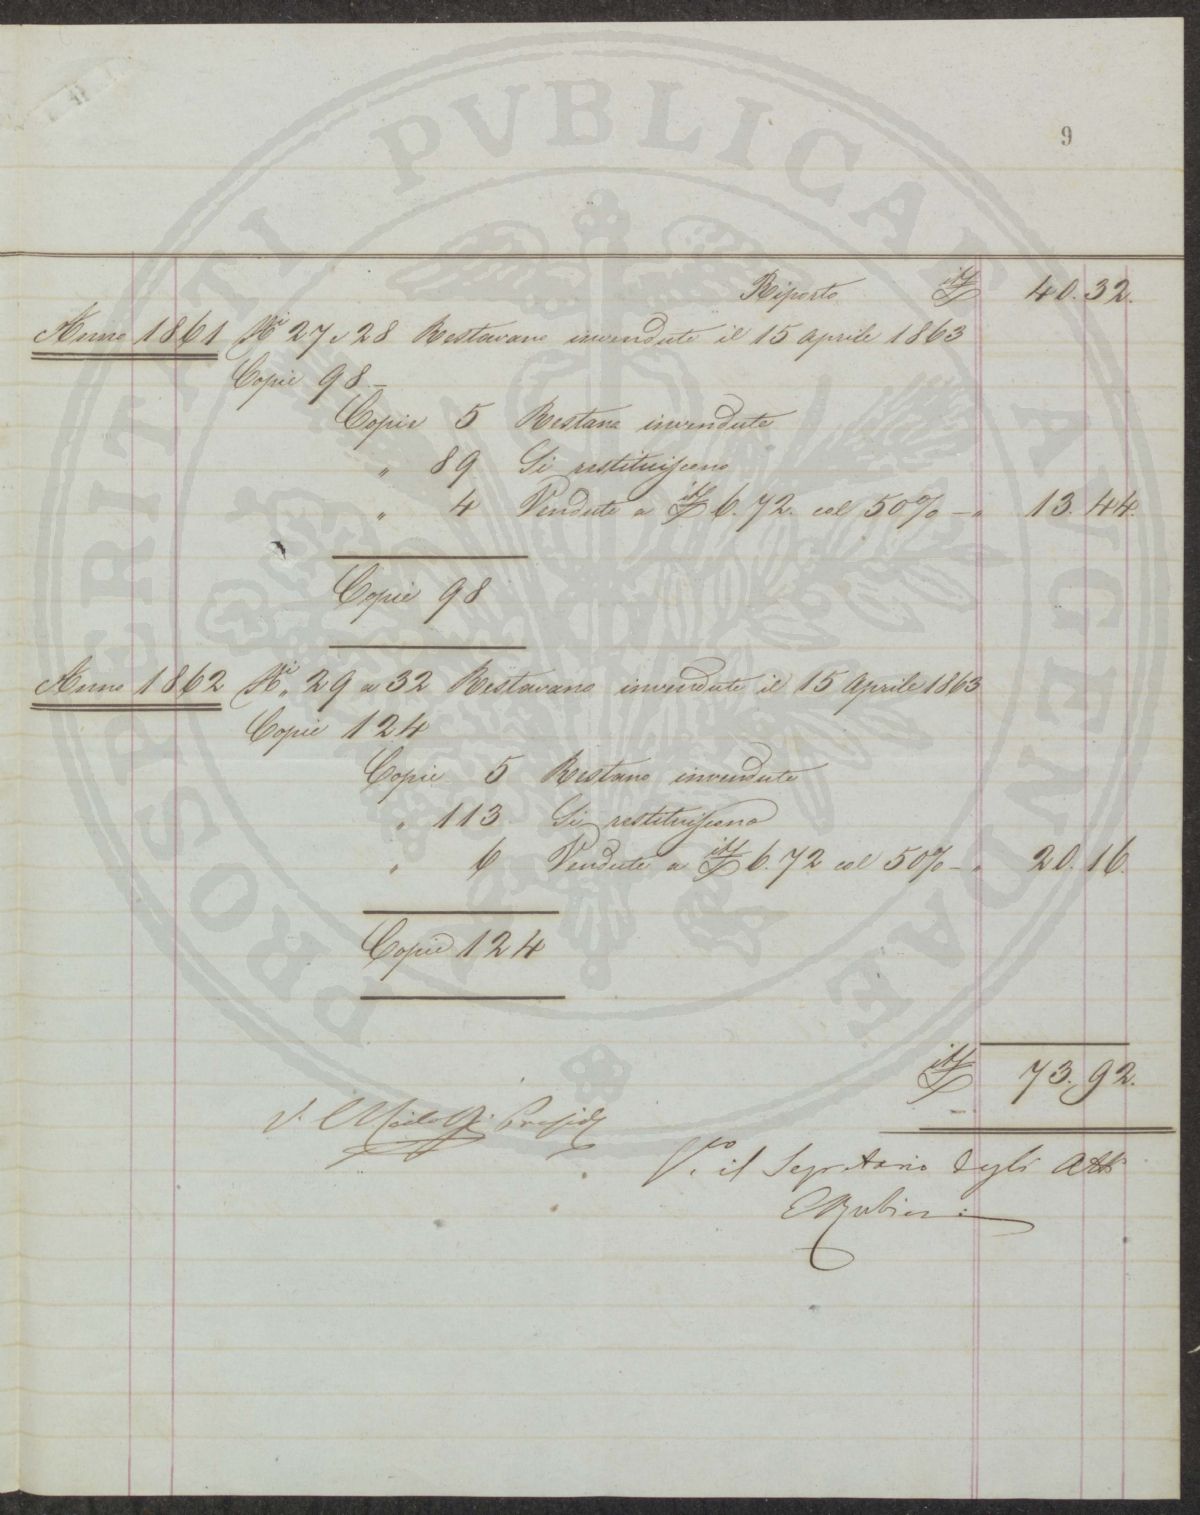 9
Riporto it£ 40. 32.
Anno 1861 Ni 27 e 28 Restavano invendute il 15 Aprile 1863
Copie 98 –
Copie 5 Restano invendute
" 89 Si restituiscono
" 4 Vendute a it£ 6. 72. col 50% – " 13. 44.
Copie 98
Anno 1862 Ni. 29 a 32 Restavano invendute il 15 Aprile 1863
Copie 124
Copie 5 Restano invendute
" 113 Si restituiscono
" 6 Vendute a it£ 6. 72 col 50% – " 20. 16.
Copie 124
it£ 73. 92.
Presid
Vo. il Segretario degli Atti
PROSPERITATI PVBLICAE AVGENDAE